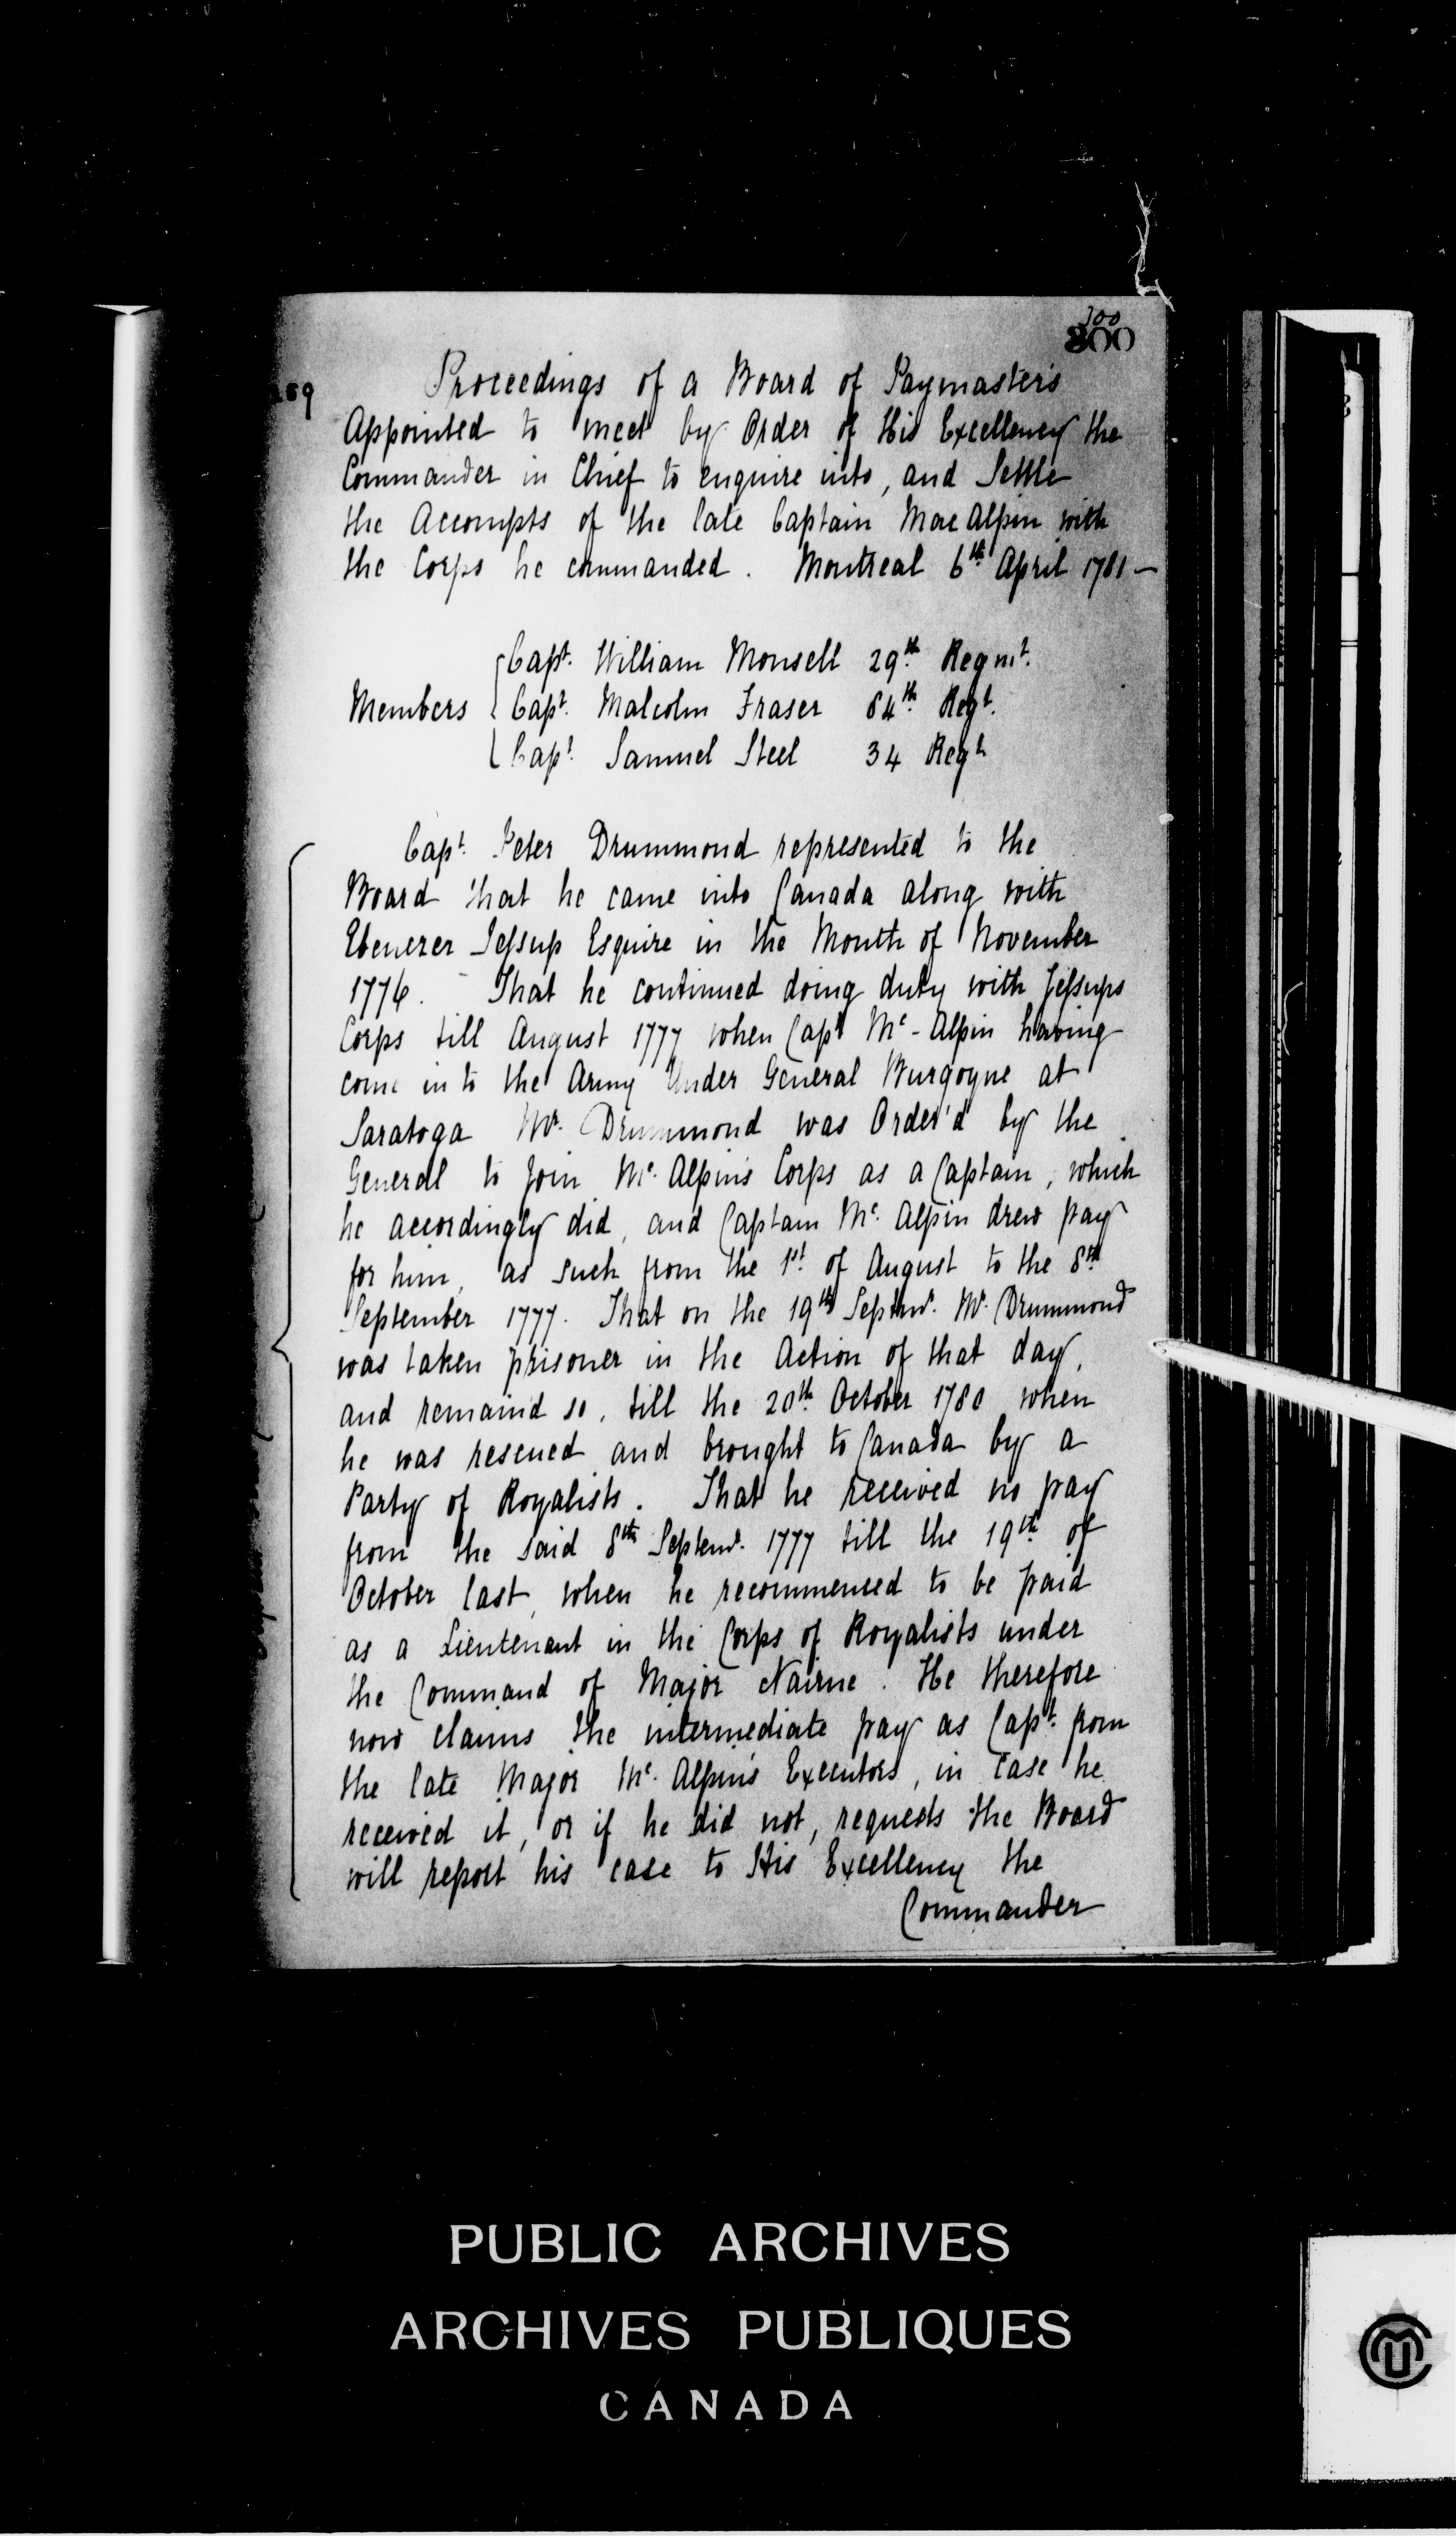 300
300
Proceedings of a Board of Paymasters
Appointed to meet by Order of His Excellency the
Commander in Chief to enquire into, and Settle
the Accompts of the late Captain Mac Alpin with
the Corps he commanded. Montreal 6th April 1781 —
Capt. William Monsell 29th Regmt.
Members Capt. Malcolm Fraser 84th Regt.
Capt. Samuel Steel 34 Regt
Capt. Peter Drummond represented to the
Board that he came into Canada along with
Ebenezer Jessup Esquire in the Month of November
1776. That he continued doing duty with Jessups
Corps till August 1777 when Capt Mc-Alpin having
come into the Army Under General Burgoyne at
Saratoga Mr. Drummond was Order'd by the
General to join Mc. Alpin's Corps as a Captain, which
he accordingly did, and Captain Mc. Alpin drew pay
for him, as such from the 1st. of August to the 8th
September 1777. That on the 19th Septemr. Mr. Drummond
was taken prisoner in the Action of that day,
and remaind so, till the 20th. October 1780 when
he was rescued and brought to Canada by a
Party of Royalists. That he received no pay
from the said 8th Septemr. 1777 till the 19th. of
October last, when he recommenced to be paid
as a Lieutenant in the Corps of Royalists under
the Command of Major Nairne. He therefore
now claims the intermediate pay as Capt. from
the late Major Mc. Alpin's Executors, in case he
received it, or if he did not, requests the Board
will report his case to His Excellency the
Commander
PUBLIC ARCHIVES
ARCHIVES PUBLIQUES
CANADA